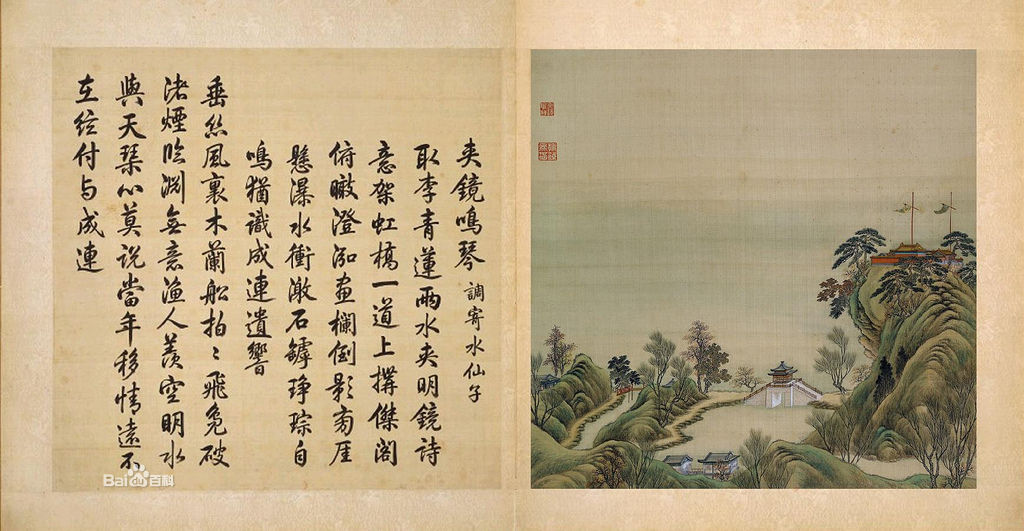 夾鏡鳴琴 調寄水仙子
取李青蓮兩水夾明鏡詩
意架虹橋一道上搆傑閣
俯瞰澄泓畫欄倒影旁厓
懸瀑水衝激石罅琤琮自
鳴猶識成連遺響
垂絲風裏木蘭船拍〻飛鳧破
渚煙臨淵無意漁人羨空明水
與天琴心莫說當年移情遠不
在絃付与成連
Bai百科